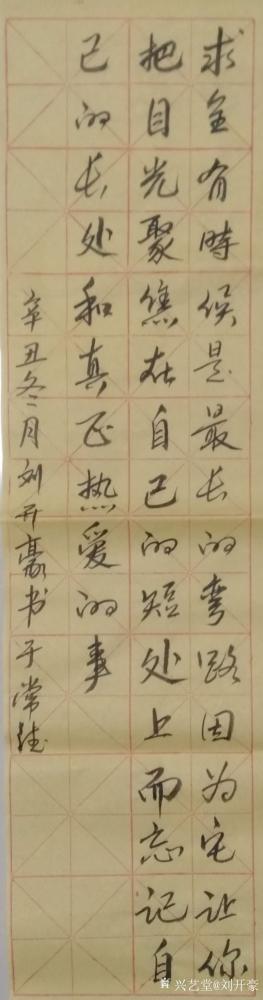 求全有時候是最长的弯路因为它让你
把目光聚焦在自己的短处上而忘记自
己的长处和真正热爱的事
辛丑冬月刘开豪书于常德
兴艺堂@刘开豪